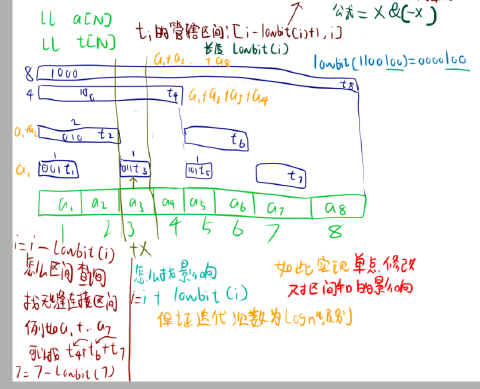 ll a[N]
ll t[N]
ti的管辖区间:[i-lowbit(i)+1,i]
长度 lowbit(i)
公式=X&(-X)
lowbit(1100100)=0000100
a1+a2...+a8
8 1000 t8
4 100 t4 a1+a2+a3+a4
a1+a2 2 010 t2 t6
a1 1 001 t1 1 011 t3 1 101 t5 t7
a1 a2 a3 a4 a5 a6 a7 a8
1 2 3 4 5 6 7 8
i=i-lowbit(i)
怎么区间查询
找无缝连接区间
例如a1+..a7
可以指 t4+t6+t7
7=7-lowbit(7)
+X
怎么找影响
i=i+lowbit(i)
保证迭代次数为Logn级别
如此实现单点修改
对区间和的影响